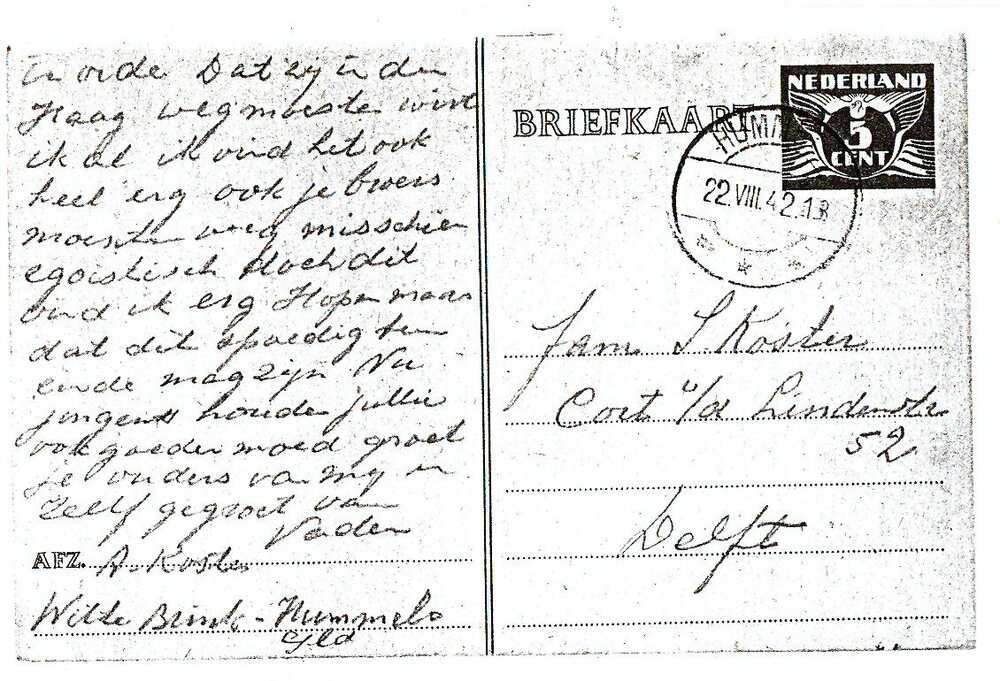 in orde Dat zy in den
Haag weg moesten wist
ik al ik vind het ook
heel erg ook je broers
moesten weg misschien
egoistisch doch dit
vind ik erg Hopen maar
dat dit spoedig ten
einde mag zyn Nu
jongens houden jullie
ook goeden moed groet
je ouders van my en
zelf gegroet van
Vader
AFZ. A. Koster
Wilde Brink - Hummelo
Gld
BRIEFKAART
NEDERLAND
5
CENT
22.VIII.42.18
Fam S. Koster
Cort v/d Lindenstr
52
Delft